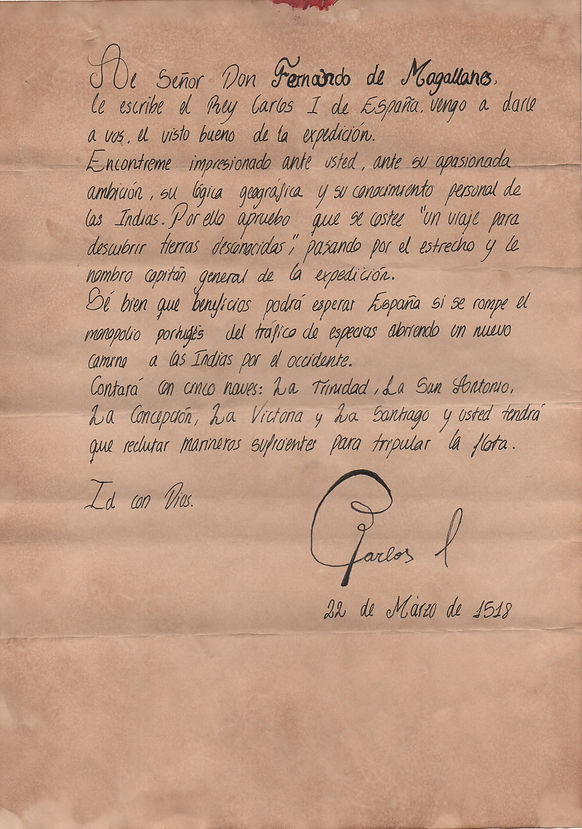 Al Señor Don Fernando de Magallanes,
le escribe el Rey Carlos I de España, vengo a darle
a vos, el visto bueno de la expedición.
Encontreme impresionado ante usted, ante su apasionada
ambición, su lógica geográfica y su conocimiento personal de
las Indias. Por ello apruebo que se costee "un viaje para
descubrir tierras desconocidas", pasando por el estrecho y le
nombro capitán general de la expedición.
Sé bien que beneficios podrá esperar España si se rompe el
monopolio portugés del tráfico de especias abriendo un nuevo
camino a las Indias por el occidente.
Contará con cinco naves: La Trinidad, La San Antonio,
La Concepción, La Victoria y La Santiago y usted tendrá
que reclutar marineros suficientes para tripular la flota.
Id con Dios.
Carlos I
22 de Marzo de 1518